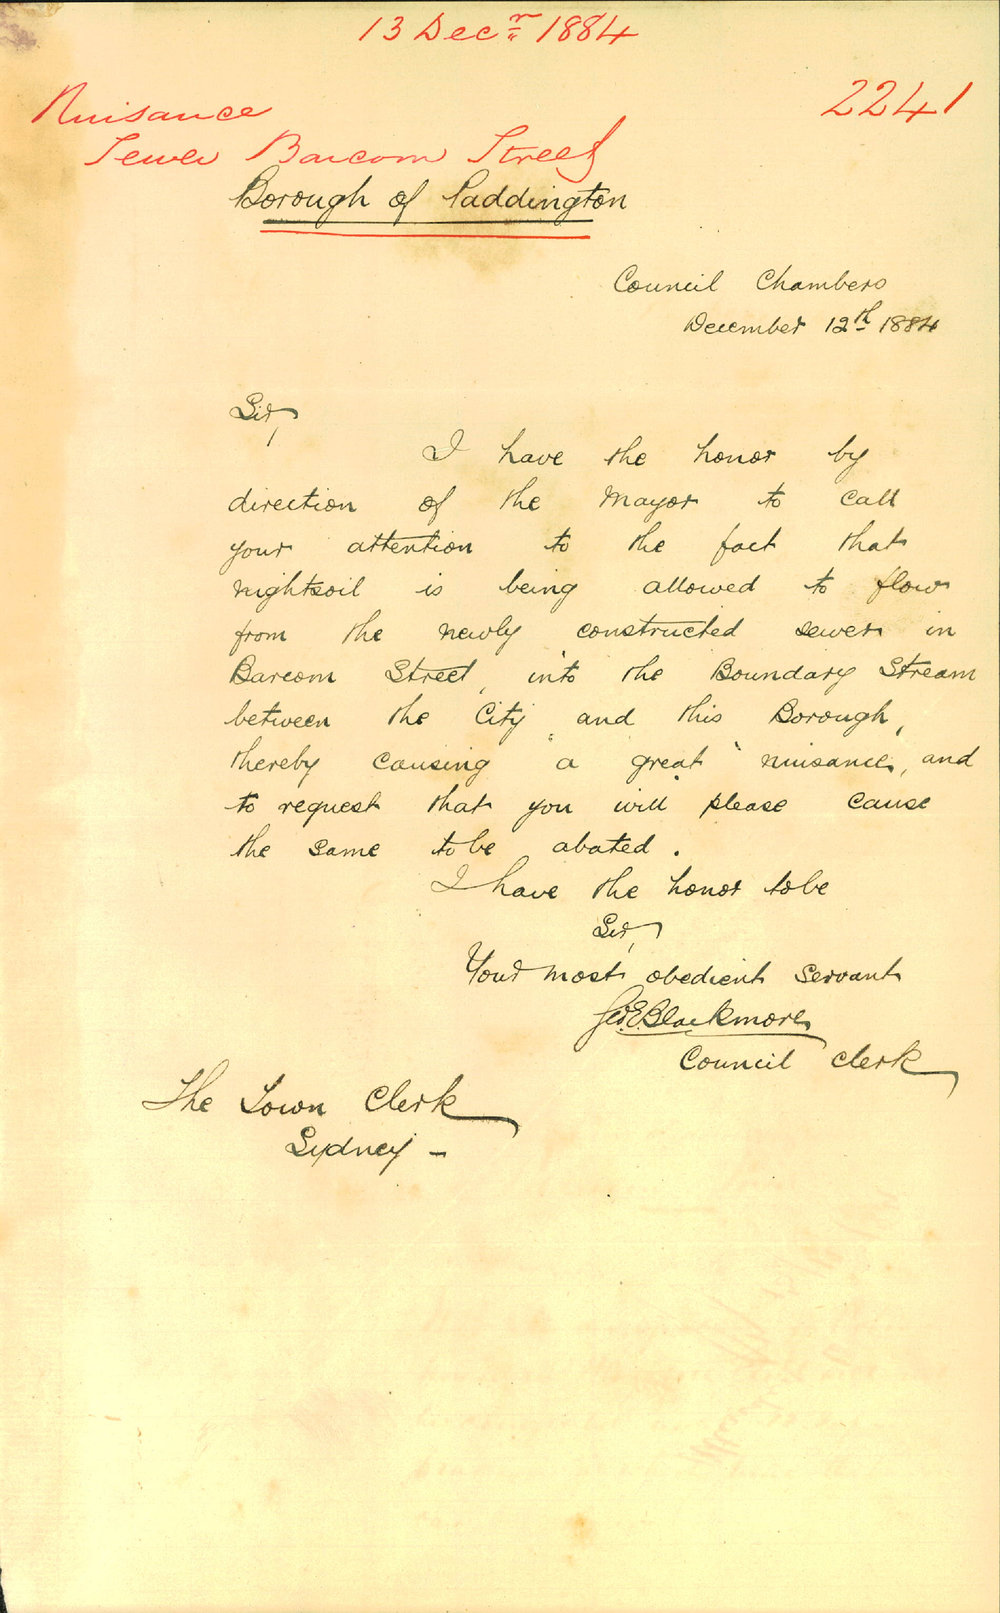 13 Decr 1884
2241
Nuisance
Sewer Barcom Street
Borough of Paddington
Council Chambers
December 12th 1884
Sir,
I have the honor by
direction of the Mayor to call
your attention to the fact that
nightsoil is being allowed to flow
from the newly constructed sewer in
Barcom Street, into the Boundary Stream
between the City and this Borough,
thereby causing "a great" nuisance, and
to request that you will please cause
the same to be abated.
I have the honor to be
Sir,
Your most obedient servant
Geo. E. Blackmore
Council Clerk
The Town Clerk
Sydney –